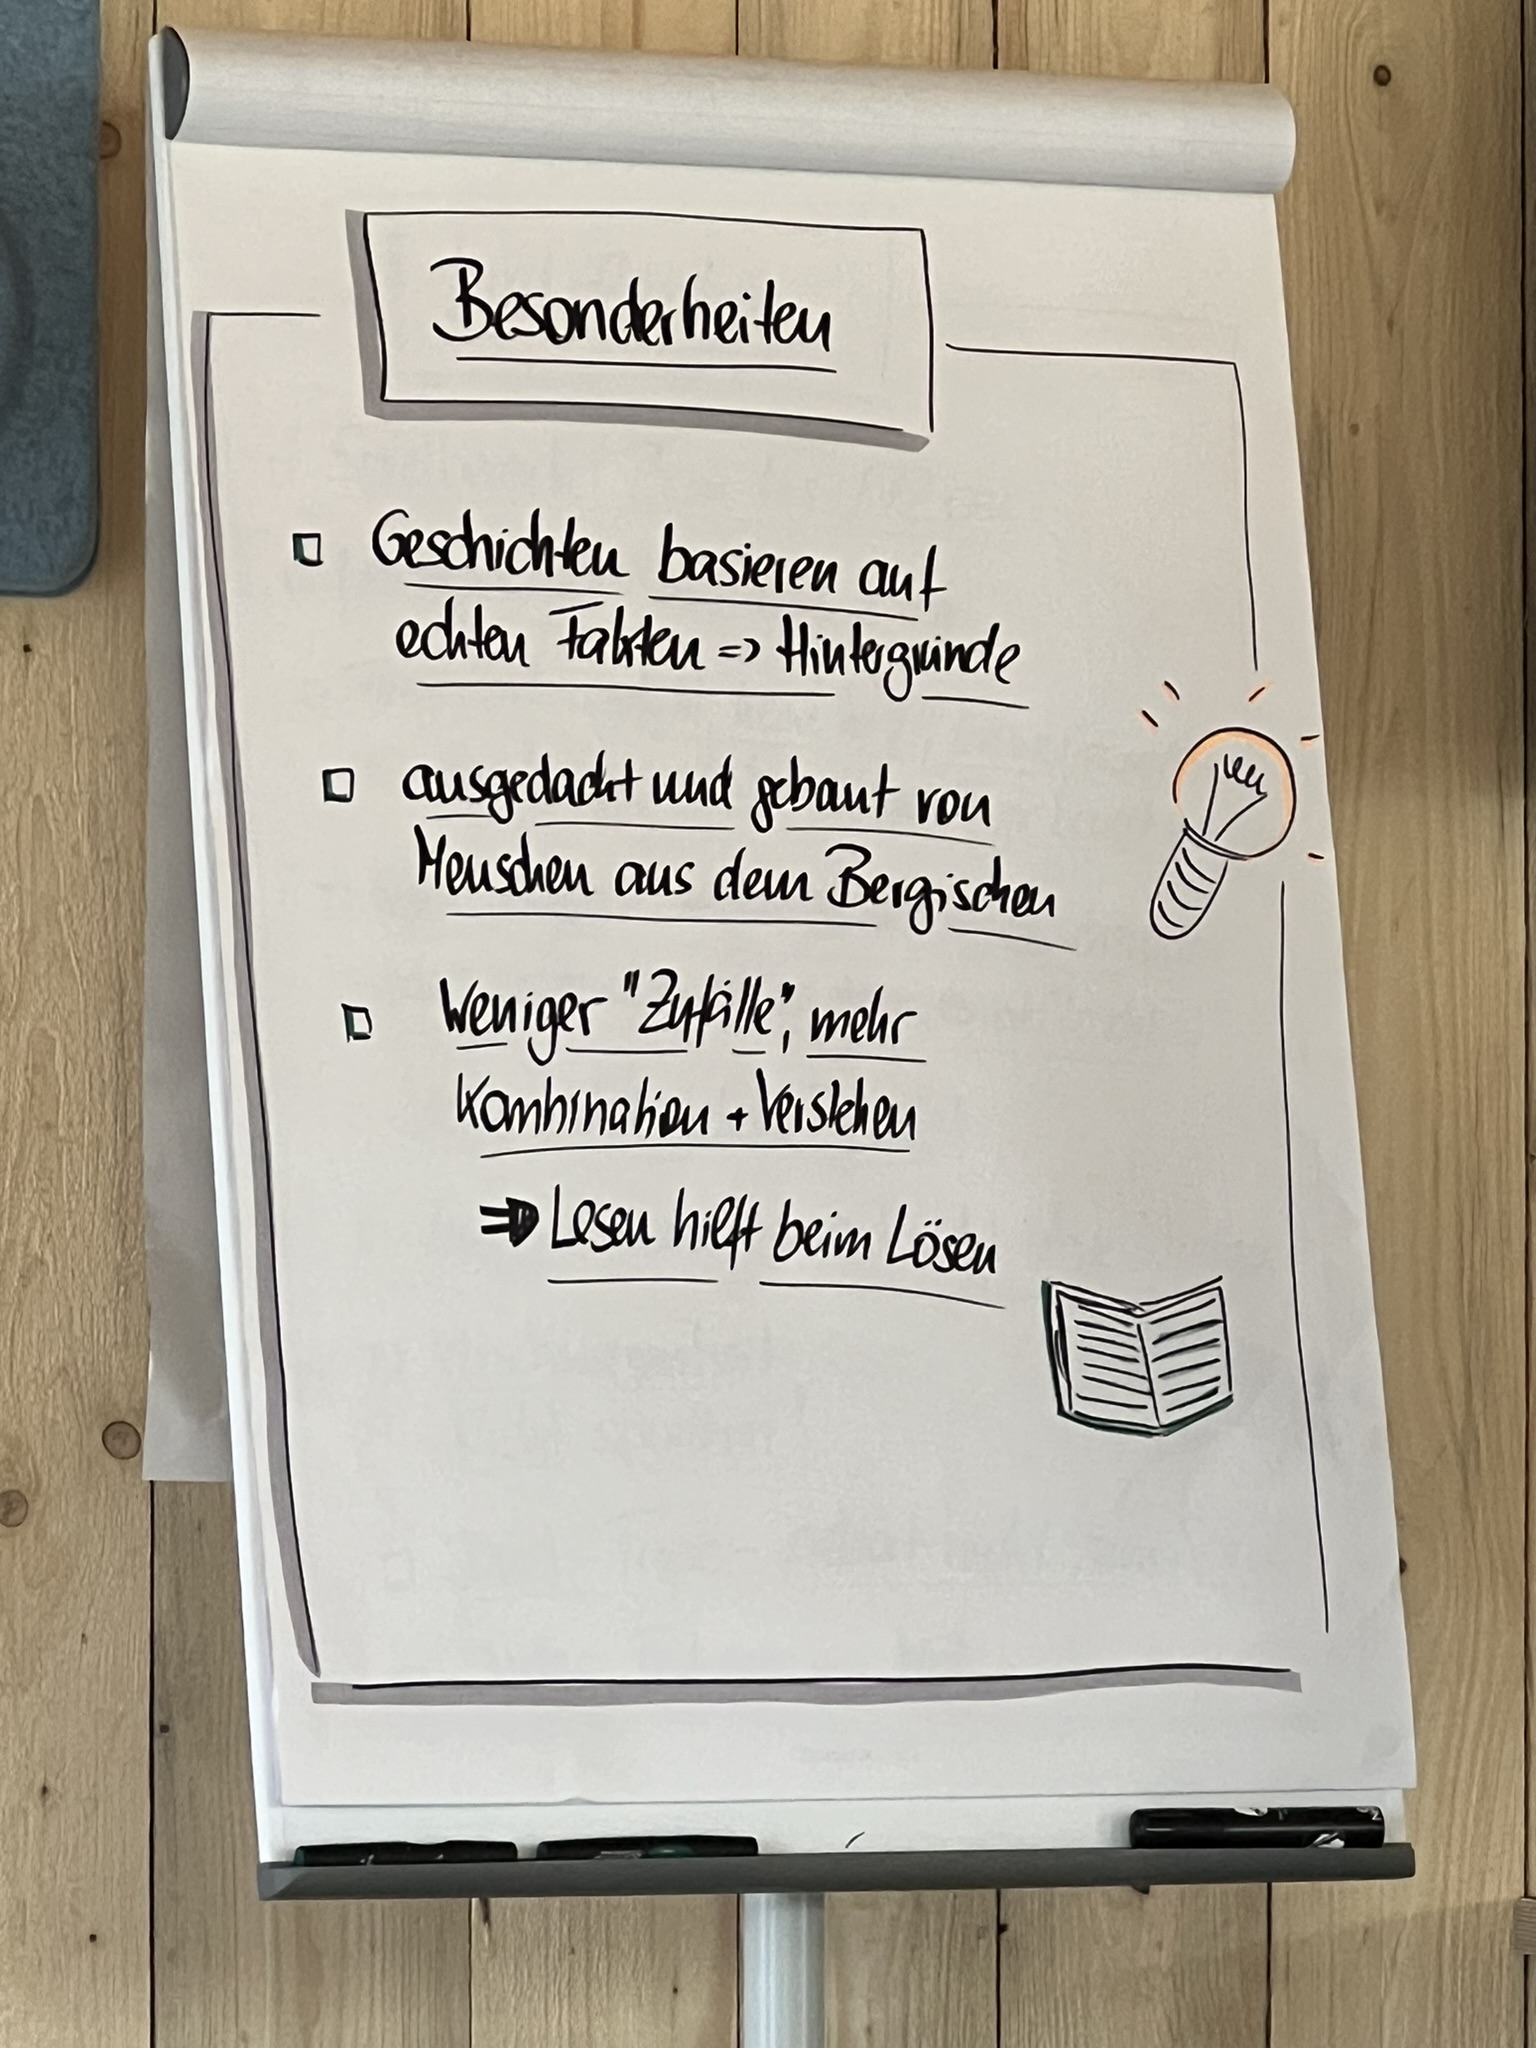 Besonderheiten
Geschichten basieren auf
echten Fakten => Hintergründe
ausgedacht und gebaut von
Menschen aus dem Bergischen
Weniger "Zufälle", mehr
Kombination + Verstehen
=> Lesen hilft beim Lösen